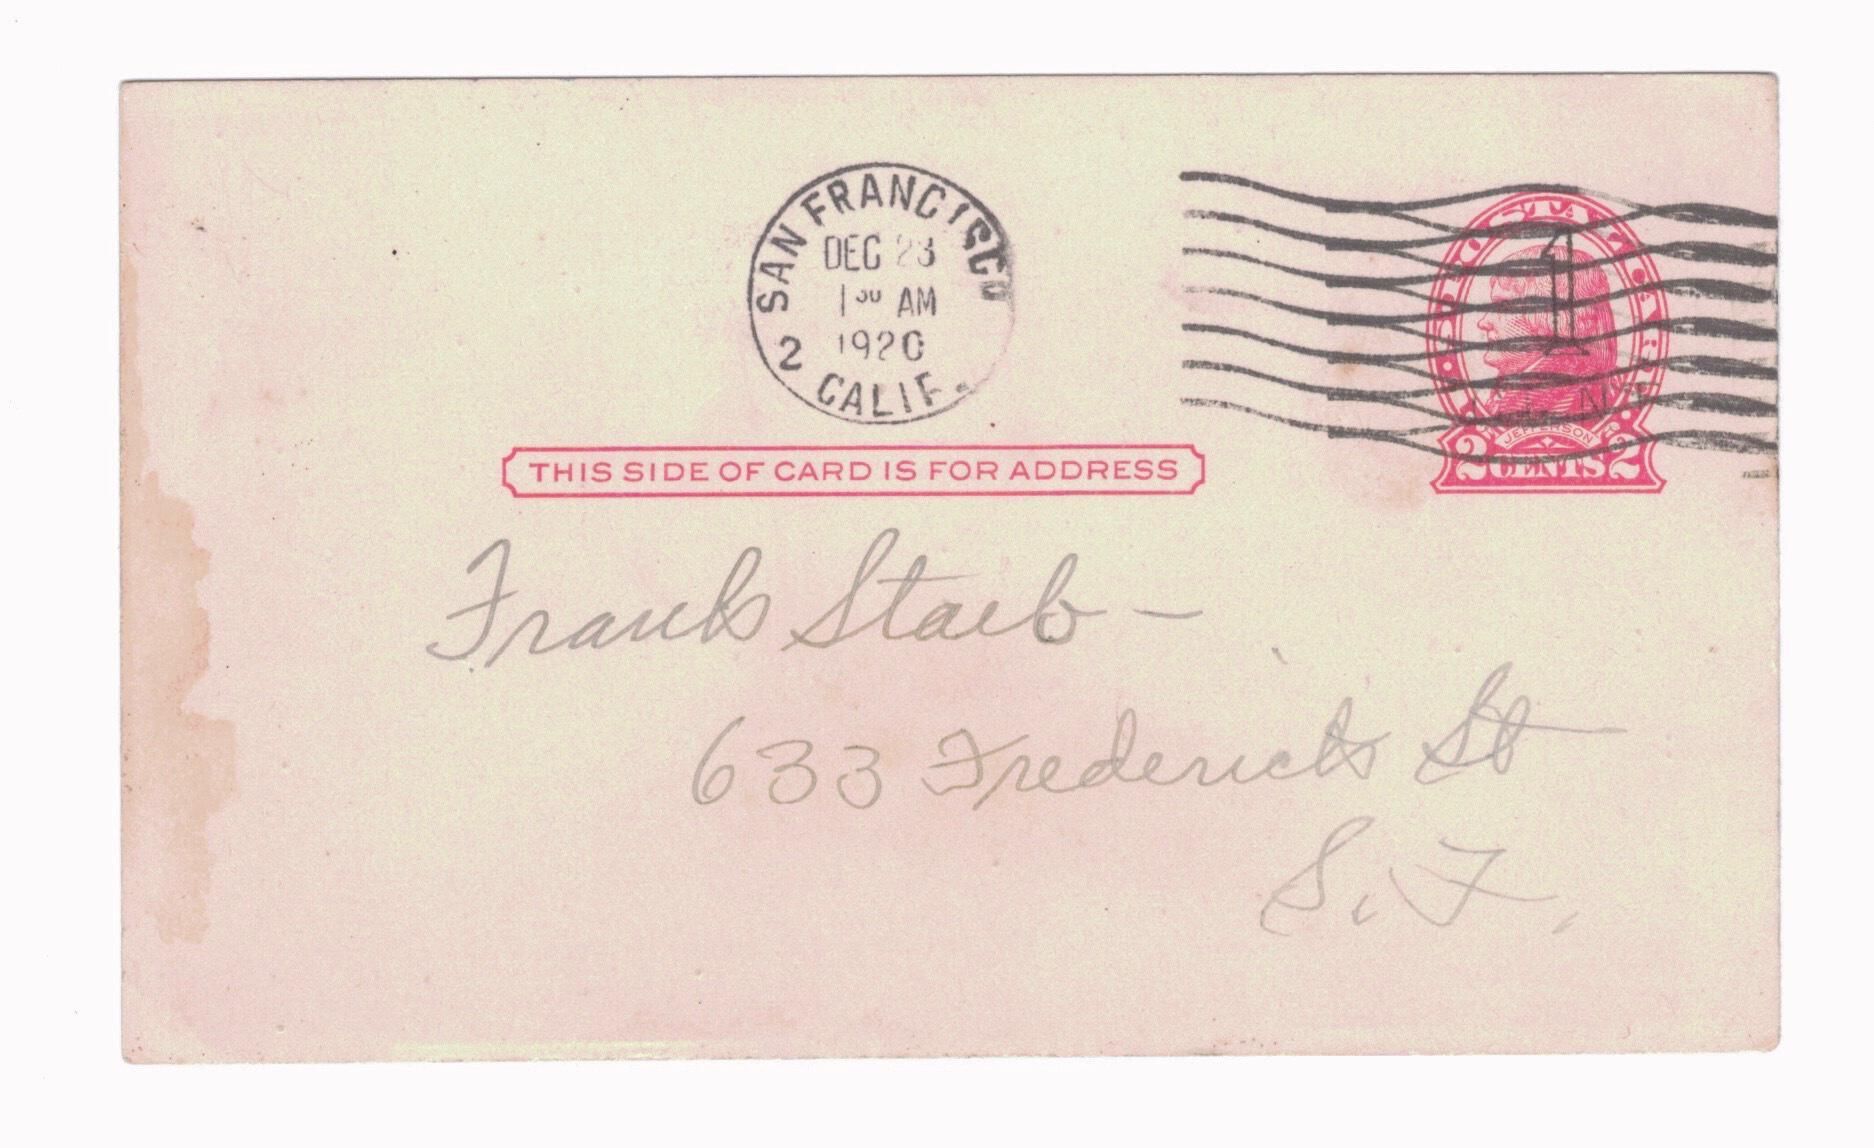 SAN FRANCISCO
DEC 23
1 30 AM
1920
2 CALIF.
1
JEFFERSON
2 CENTS 2
THIS SIDE OF CARD IS FOR ADDRESS
Frank Staib –
633 Frederick St
S. F.